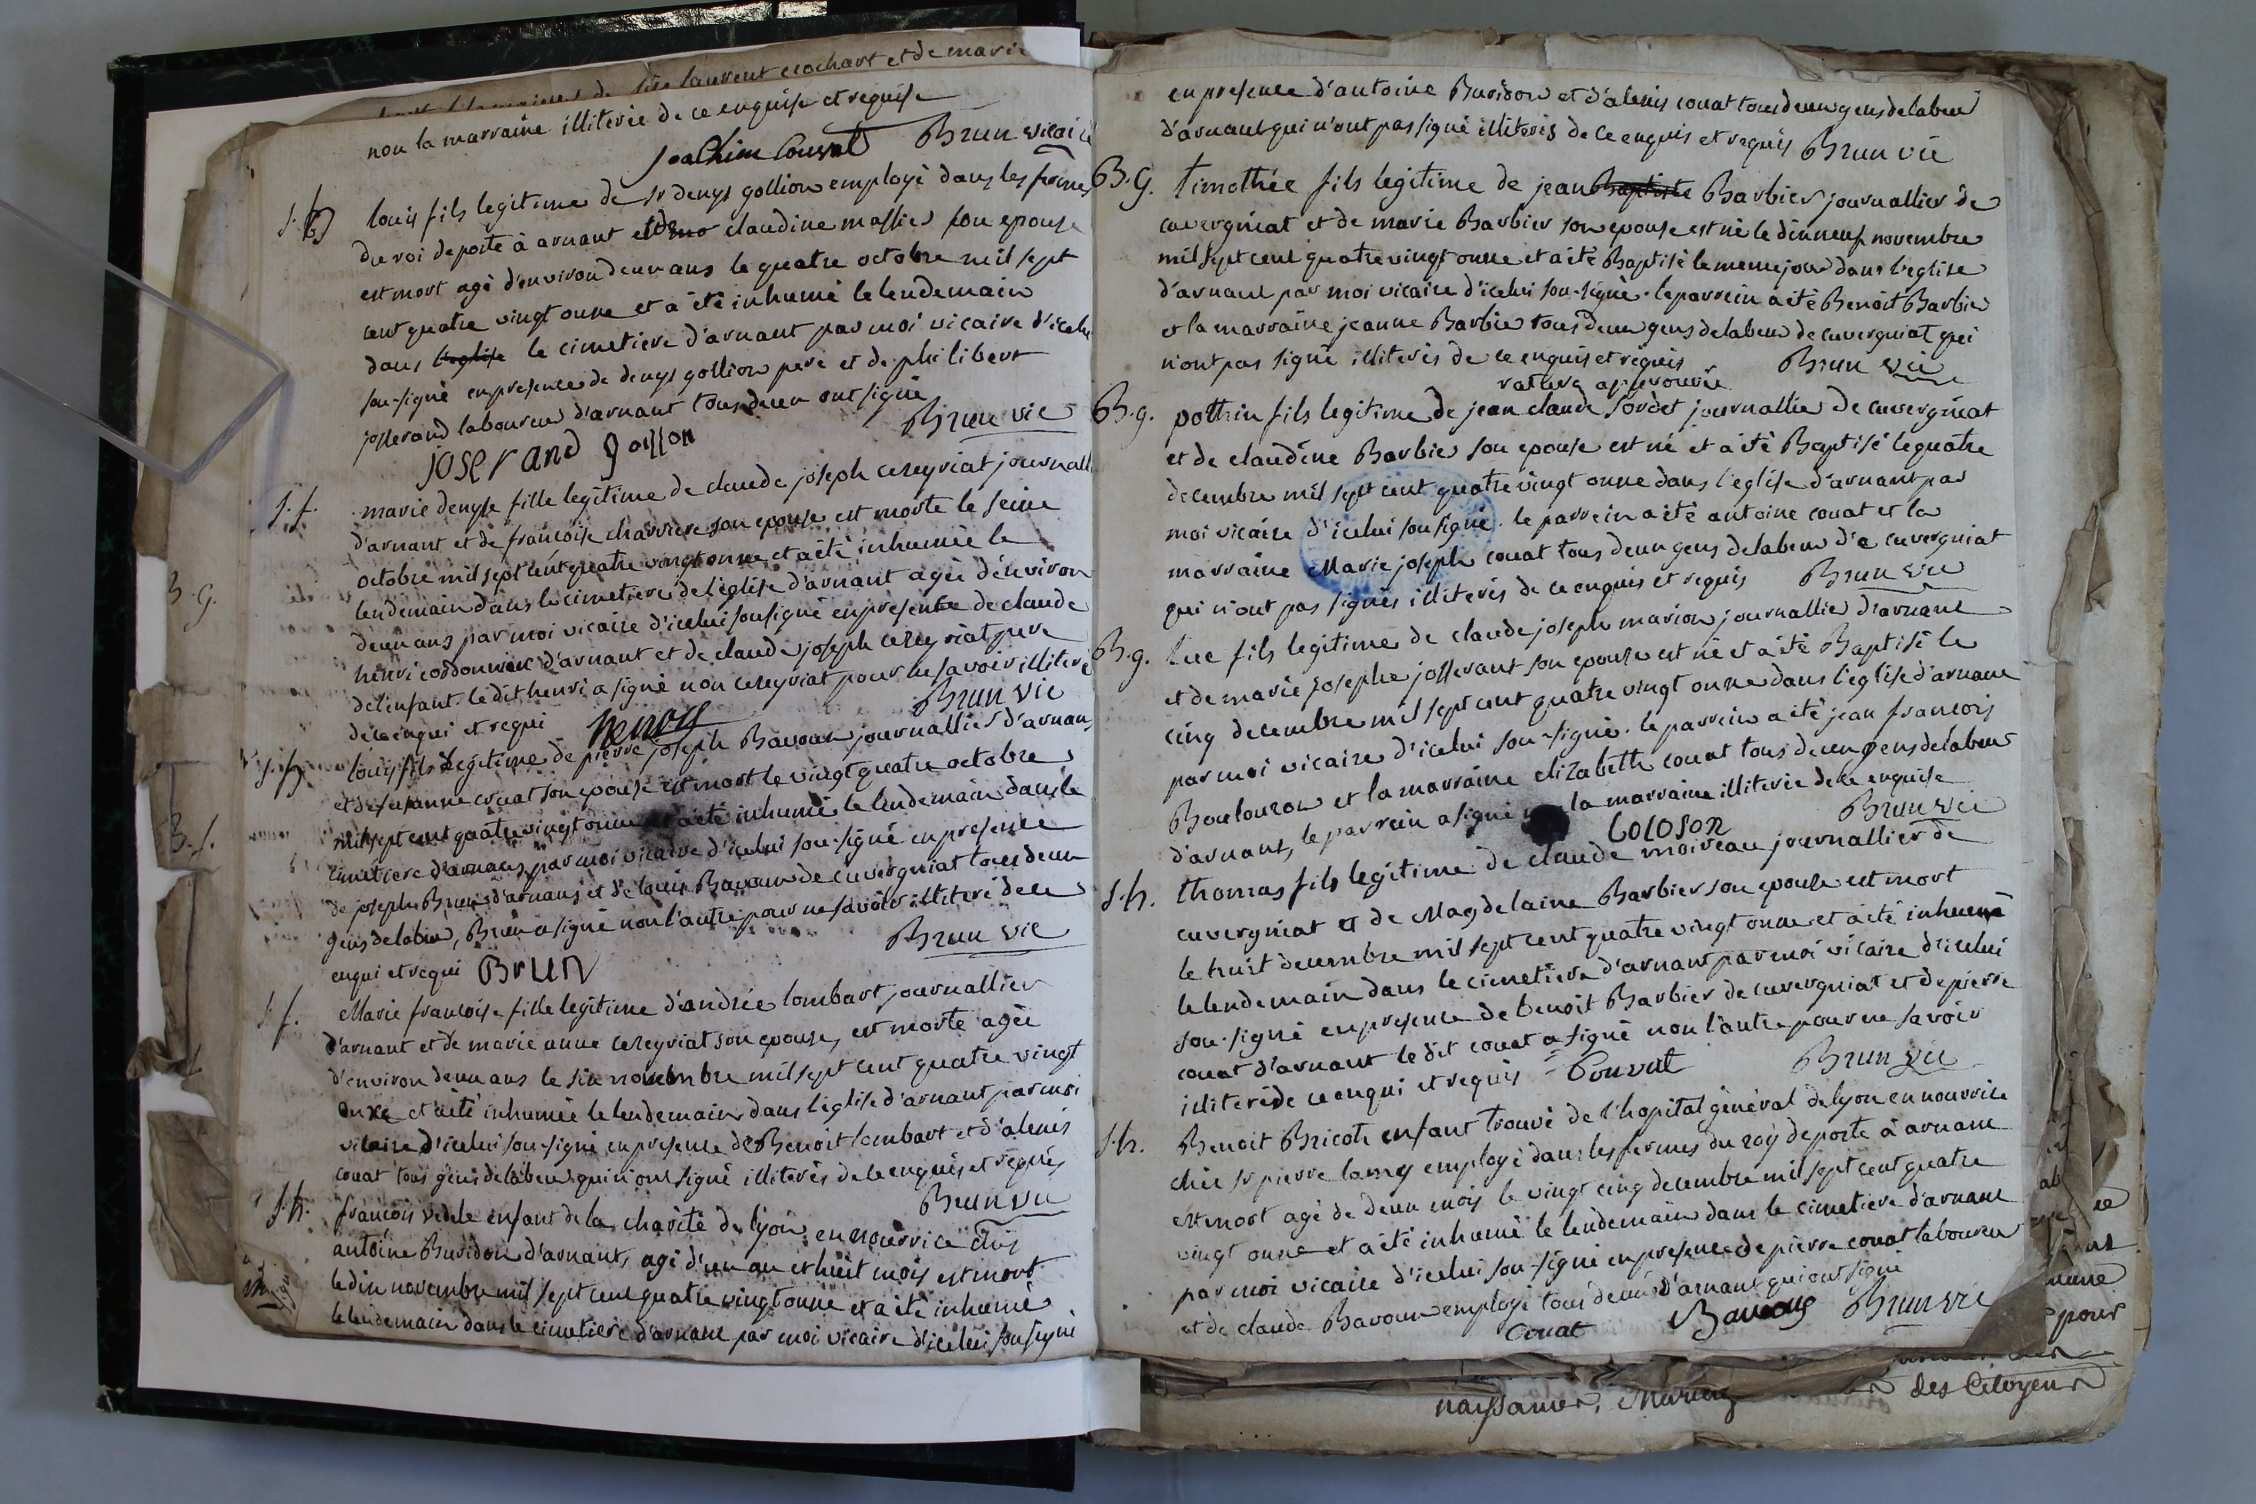 laurent crochart et de marie
non la marraine illiterée de ce enquise et requise
Joachim Couvat Brun vicaire
s.g. louis fils legitime de sr denys gollion employé dans les fermes
du roi de poste à arnant et de claudine massier son epouse
est mort agé d'environ deux ans le quatre octobre mil sept
cent quatre vingt onze et a été inhumé le lendemain
dans l'eglise le cimetiere d'arnant par moi vicaire d'icelui
sou-signé en presence de denys gollion pere et de philibert
josserand laboureur d'arnant tous deux ont signé
joserand gollion Brun vic
s.f. marie denyse fille legitime de claude joseph cereyriat journall
d'arnant et de françoise charriere son epouse est morte le seize
octobre mil sept cent quatre vingt onze et a été inhumée le
lendemain dans le cimetiere de l'eglise d'arnant agée d'environ
deux ans par moi vicaire d'icelui sousigné en presence de claude
henri cordonnier d'arnant et de claude joseph cereyriat pere
de l'enfant. le dit henri a signé non cereyriat pour ne savoir illiteré
de ce enqui et requi henry Brun vic
s.g. louis fils legitime de pierre joseph Bavoux journallier d'arnant
et de susanne couat son epouse est mort le vingt quatre octobre
mil sept cent quatre vingt onze et a été inhumé le lendemain dans le
cimetiere d'arnans par moi vicaire d'icelui sou-signé en presence
de joseph Brun d'arnans et de louis Bavoux de cuvergniat tous deux
gens de labeur, Brun a signé non l'autre pour ne savoir illiteré de ce
enqui et requi Brun Brun vic
s.f. Marie françoise fille legitime d'andrée lombart journallier
d'arnant et de marie anne cereyriat son epouse, est morte agée
d'environ deux ans le six novembre mil sept cent quatre vingt
onze et a été inhumée le lendemain dans l'eglise d'arnant par moi
vicaire d'icelui sou-signé en presence de Benoit lombart et d'alexis
couat tous gens de labeur qui n'ont signé illiterés de ce enquis et requis
Brun vic
s.h. françois vedele enfant de la charité de lyon en nourrice chés
antoine Buridon d'arnant, agé d'un an et huit mois est mort
le dix novembre mil sept cent quatre vingt onze et a été inhumé
le lendemain dans le cimetiere d'arnant par moi vicaire d'icelui sousigné
en presence d'antoine Buridon et d'alexis couat tous deux gens de labeur
d'arnant qui n'ont pas signé illiterés de ce enquis et requis Brun vic
B.g. timothée fils legitime de jean Baptiste Barbier journallier de
cuvergniat et de marie Barbier son epouse est né le dixneuf novembre
mil sept cent quatre vingt onze et a été Baptisé le meme jour dans l'eglise
d'arnant par moi vicaire d'icelui sou-signé. le parrein a été Benoit Barbier
et la marraine jeanne Barbier tous deux gens de labeur de cuvergniat qui
n'ont pas signé illiterés de ce enquis et requis Brun vic
rature approuvée
B.g. pothin fils legitime de jean claude sordet journallier de cuvergniat
et de claudine Barbier son epouse est né et a été Baptisé le quatre
decembre mil sept cent quatre vingt onze dans l'eglise d'arnant par
moi vicaire d'icelui sousigné. le parrein a été antoine couat et la
marraine Marie joseph couat tous deux gens de labeur d'e cuvergniat
qui n'ont pas signés illiterés de ce enquis et requis Brun vic
B.g. luc fils legitime de claude joseph marion journallier d'arnant
et de marie josephe josserant son epouse est né et a été Baptisé le
cinq decembre mil sept cent quatre vingt onze dans l'eglise d'arnant
par moi vicaire d'icelui sou-signé. le parrein a été jean françois
Boulouzon et la marraine elizabeth couat tous deux gens de labeur
d'arnant, le parrein a signé la marraine illiterée de ce enquise
coloson Brun vic
s.h. thomas fils legitime de claude moiveau journallier de
cuvergniat et de Magdelaine Barbier son epouse est mort
le huit decembre mil sept cent quatre vingt onze et a été inhumé
le lendemain dans le cimetiere d'arnant par moi vicaire d'icelui
sou-signé en presence de benoit Barbier de cuvergniat et de pierre
couat d'arnant le dit couat a signé non l'autre pour ne savoir
illiteré de ce enqui et requis Couvat Brun vic
s.h. Benoit Bricoti enfant trouvé de l'hopital général de lyon en nourrice
chée sr pierre lamy employé dans les fermes du roy de poste à arnant
est mort agé de deux mois le vingt cinq decembre mil sept cent quatre
vingt onze et a été inhumé le lendemain dans le cimetiere d'arnant
par moi vicaire d'icelui sou-signé en presence de pierre couat laboureur
et de claude Bavoux employé tous deux d'arnant qui ont signé
Couat Bavoux Brun vic
B.g.
B.f.
pour
des Citoyens
naissances, Mariag